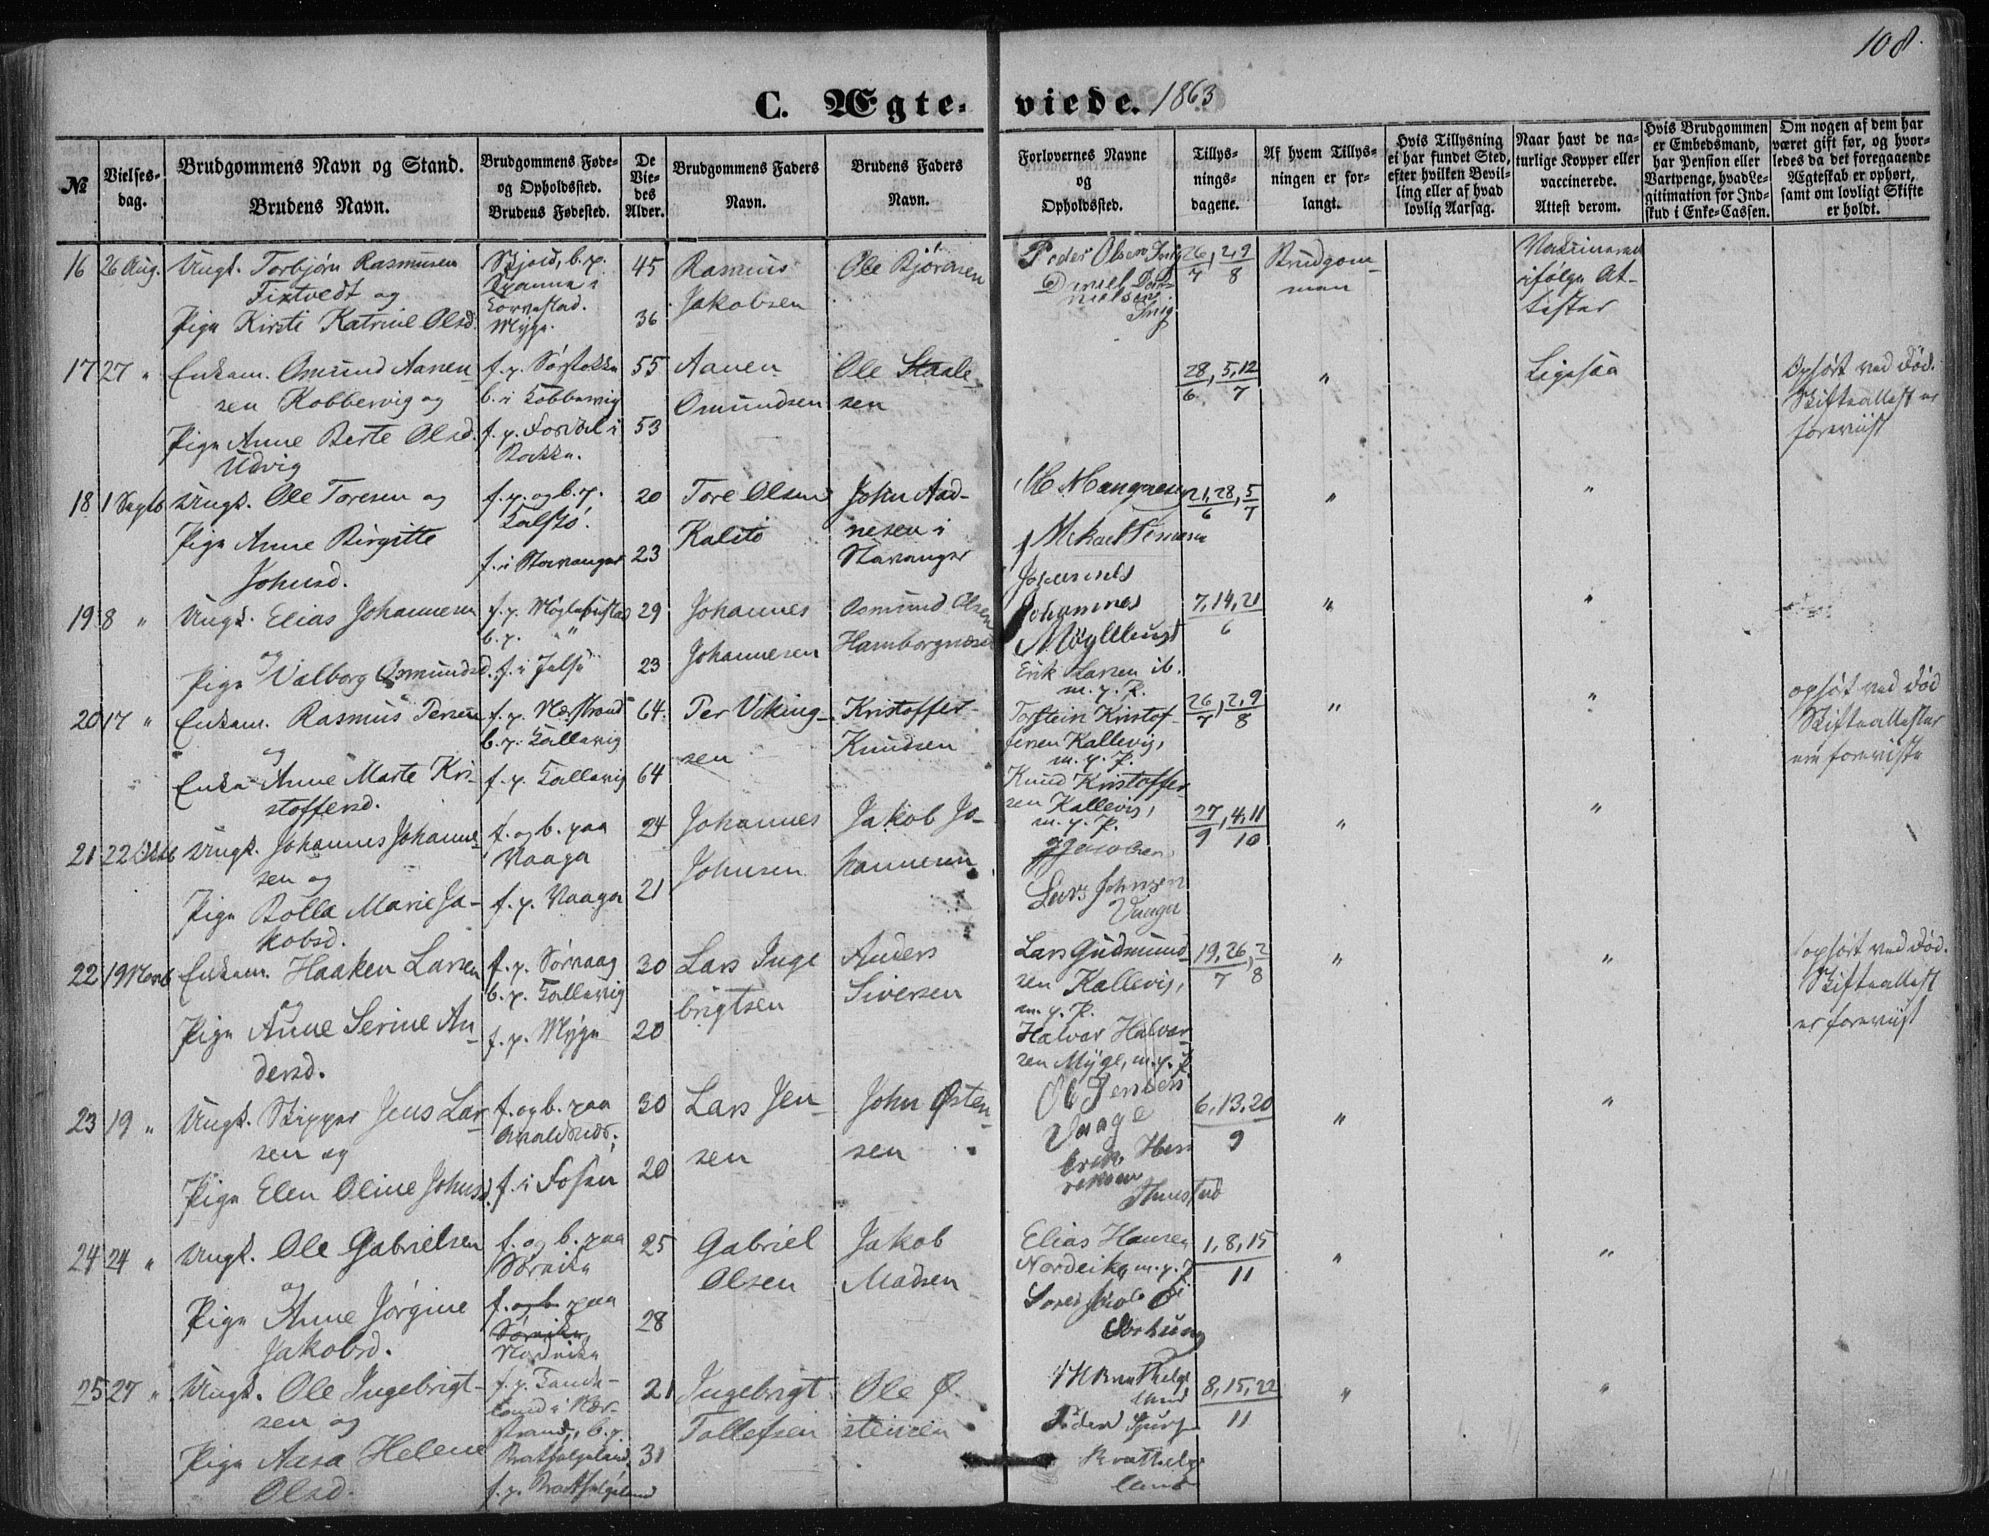 108.
C. Ægte- viede. 1863
№
Vielses-
dag.
Brudgommens Navn og Stand.
Brudens Navn.
Brudgommens Føde-
og Opholdssted.
Brudens Fødested.
De
Vie-
des
Alder.
Brudgommens Faders
Navn.
Brudens Faders
Navn.
Forlovernes Navne
og
Opholdssted.
Tillys-
nings-
dagene.
Af hvem Tillys-
ningen er for-
langt.
Hvis Tillysning
ei har fundet Sted,
efter hvilken Bevil-
ling eller af hvad
lovlig Aarsag.
Naar havt de na-
turlige Kopper eller
vaccinerede.
Attest derom.
Hvis Brudgommen
er Embedsmand,
har Pension eller
Vartpenge, hvad Le-
gitimation for Ind-
skud i Enke-Cassen.
Om nogen af dem har
været gift før, og hvor-
ledes da det foregaaende
Ægteskab er ophørt,
samt om lovligt Skifte
er holdt.
16 26 Aug. Ungk. Torbjørn Rasmusen
Fixtvedt og
Pige Kirsti Katrine Olsd.
Skjold, b. p.
i
Torvestad.
Myge.
45
36
Rasmus
Jakobsen
Ole Bjørnsen
Peder Olsen
Daniel Da-
nielsen
26, 2, 9
7 8
Brudgom-
men
Vaccinerede
ifølge At-
tester
17 27 " Enkem. Osmund Aanen-
sen Kobbervig og
Pige Anne Berte Olsd.
Udvig
f. p. Sørstokke
b. i Kobbervig
f. p. i
Bokke.
55
53
Aanen
Osmundsen
Ole Staale-
sen
28, 5, 12
6 7
"
Ligesaa
Ophørt ved Død.
Skifteattest er
foreviist
18 1 Septb Ungk. Ole Toresen og
Pige Anne Birgitte
Johnsd.
f. p. og b. p.
Kalstø.
f. i Stavanger
20
23
Tore Olsen
Kalstø
John Aad-
nesen i
Stavanger
21, 28, 5
6 7
"
"
19 8 " Ungk. Elias Johannesen
og
Pige Valborg Osmundsd.
f. p. Møglebustad
b. p. " "
f. i Jelse
29
23
Johannes
Johannesen
Osmund Olsen
Hamborgnæs
Johannes
Erik Larsen ib.
m. p. P.
7, 14, 21
6
"
"
20 17 " Enkem. Rasmus Persen
og
Enke Anne Marte Kri-
stoffersd.
f. p. Nærstrand
b. p. Kallevig
f. p. Kallevig
64.
64
Per Viking-
sen
Kristoffer
Knudsen
Torstein Kristof-
fersen Kallevig,
m. p. P.
Knud Kristoffer-
sen Kallevig,
m. p. P.
26, 2, 9
7 8
"
"
ophørt ved Død
Skifteattester
ere foreviste
21 22 Octb Ungk. Johannes Johanne-
sen og
Pige Bolla Marie Ja-
kobsd.
f. og b. paa
Vaage
f. p. Vaage
24
21
Johannes
Johnsen
Jakob Jo-
hannesen
Lars Johnsen
Vaage
27, 4, 11
9 10
"
"
22 19 Novb Enkem. Haaken Larsen
og
Pige Anne Serine An-
dersd.
f. p. Sørvaag
b. p. Kallevig
f. p. Myge
30
20
Lars Inge
brigtsen
Anders
Siversen
Lars Gudmund-
sen Kallevig,
m. p. P.
Halvor Halvor-
sen Myge, m. p. P.
19, 26, 2
7 8
"
"
ophørt ved Død.
Skifteattest
er foreviist
23 19 " Ungk. Skipper Jens Lar-
sen og
Pige Elen Oline Johnsd.
f. og b. paa
Avaldsnes.
f. i Fosen
30
20
Lars Jen-
sen
John Østen-
sen
Ol Jensen
Vaage
6, 13, 20
9
"
"
24 24 " Ungk. Ole Gabrielsen
og
Pige Anne Jørgine
Jakobsd.
f. og b. paa
Sørvike
f. og b. paa
Sørvike
Nordvike
25
28
Gabriel
Olsen
Jakob
Madsen
Elias Hansen
Nordeike m. p. P
1, 8, 15
11
"
"
25 27 " Ungk. Ole Ingebrigt-
sen og
Pige Aasa Helene
Olsd.
i Nær-
strand, b. p.
Bratthelgeland.
f. p. Bratthelgeland
21
31
Ingebrigt
Tollefsen
Ole Ø-
steinsen
Peder
Bratthelge
land
8, 15, 22
11
"
"